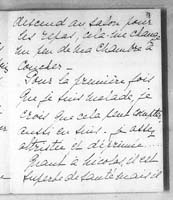 descend au salon pour
les repas, cela me change
un peu de ma chambre à
coucher –
Pour la première fois
que je suis malade, je
crois que cela peut compter
aussi
attristée et déprimée...
Quant à Nicolas, il est
superbe de santé mais il